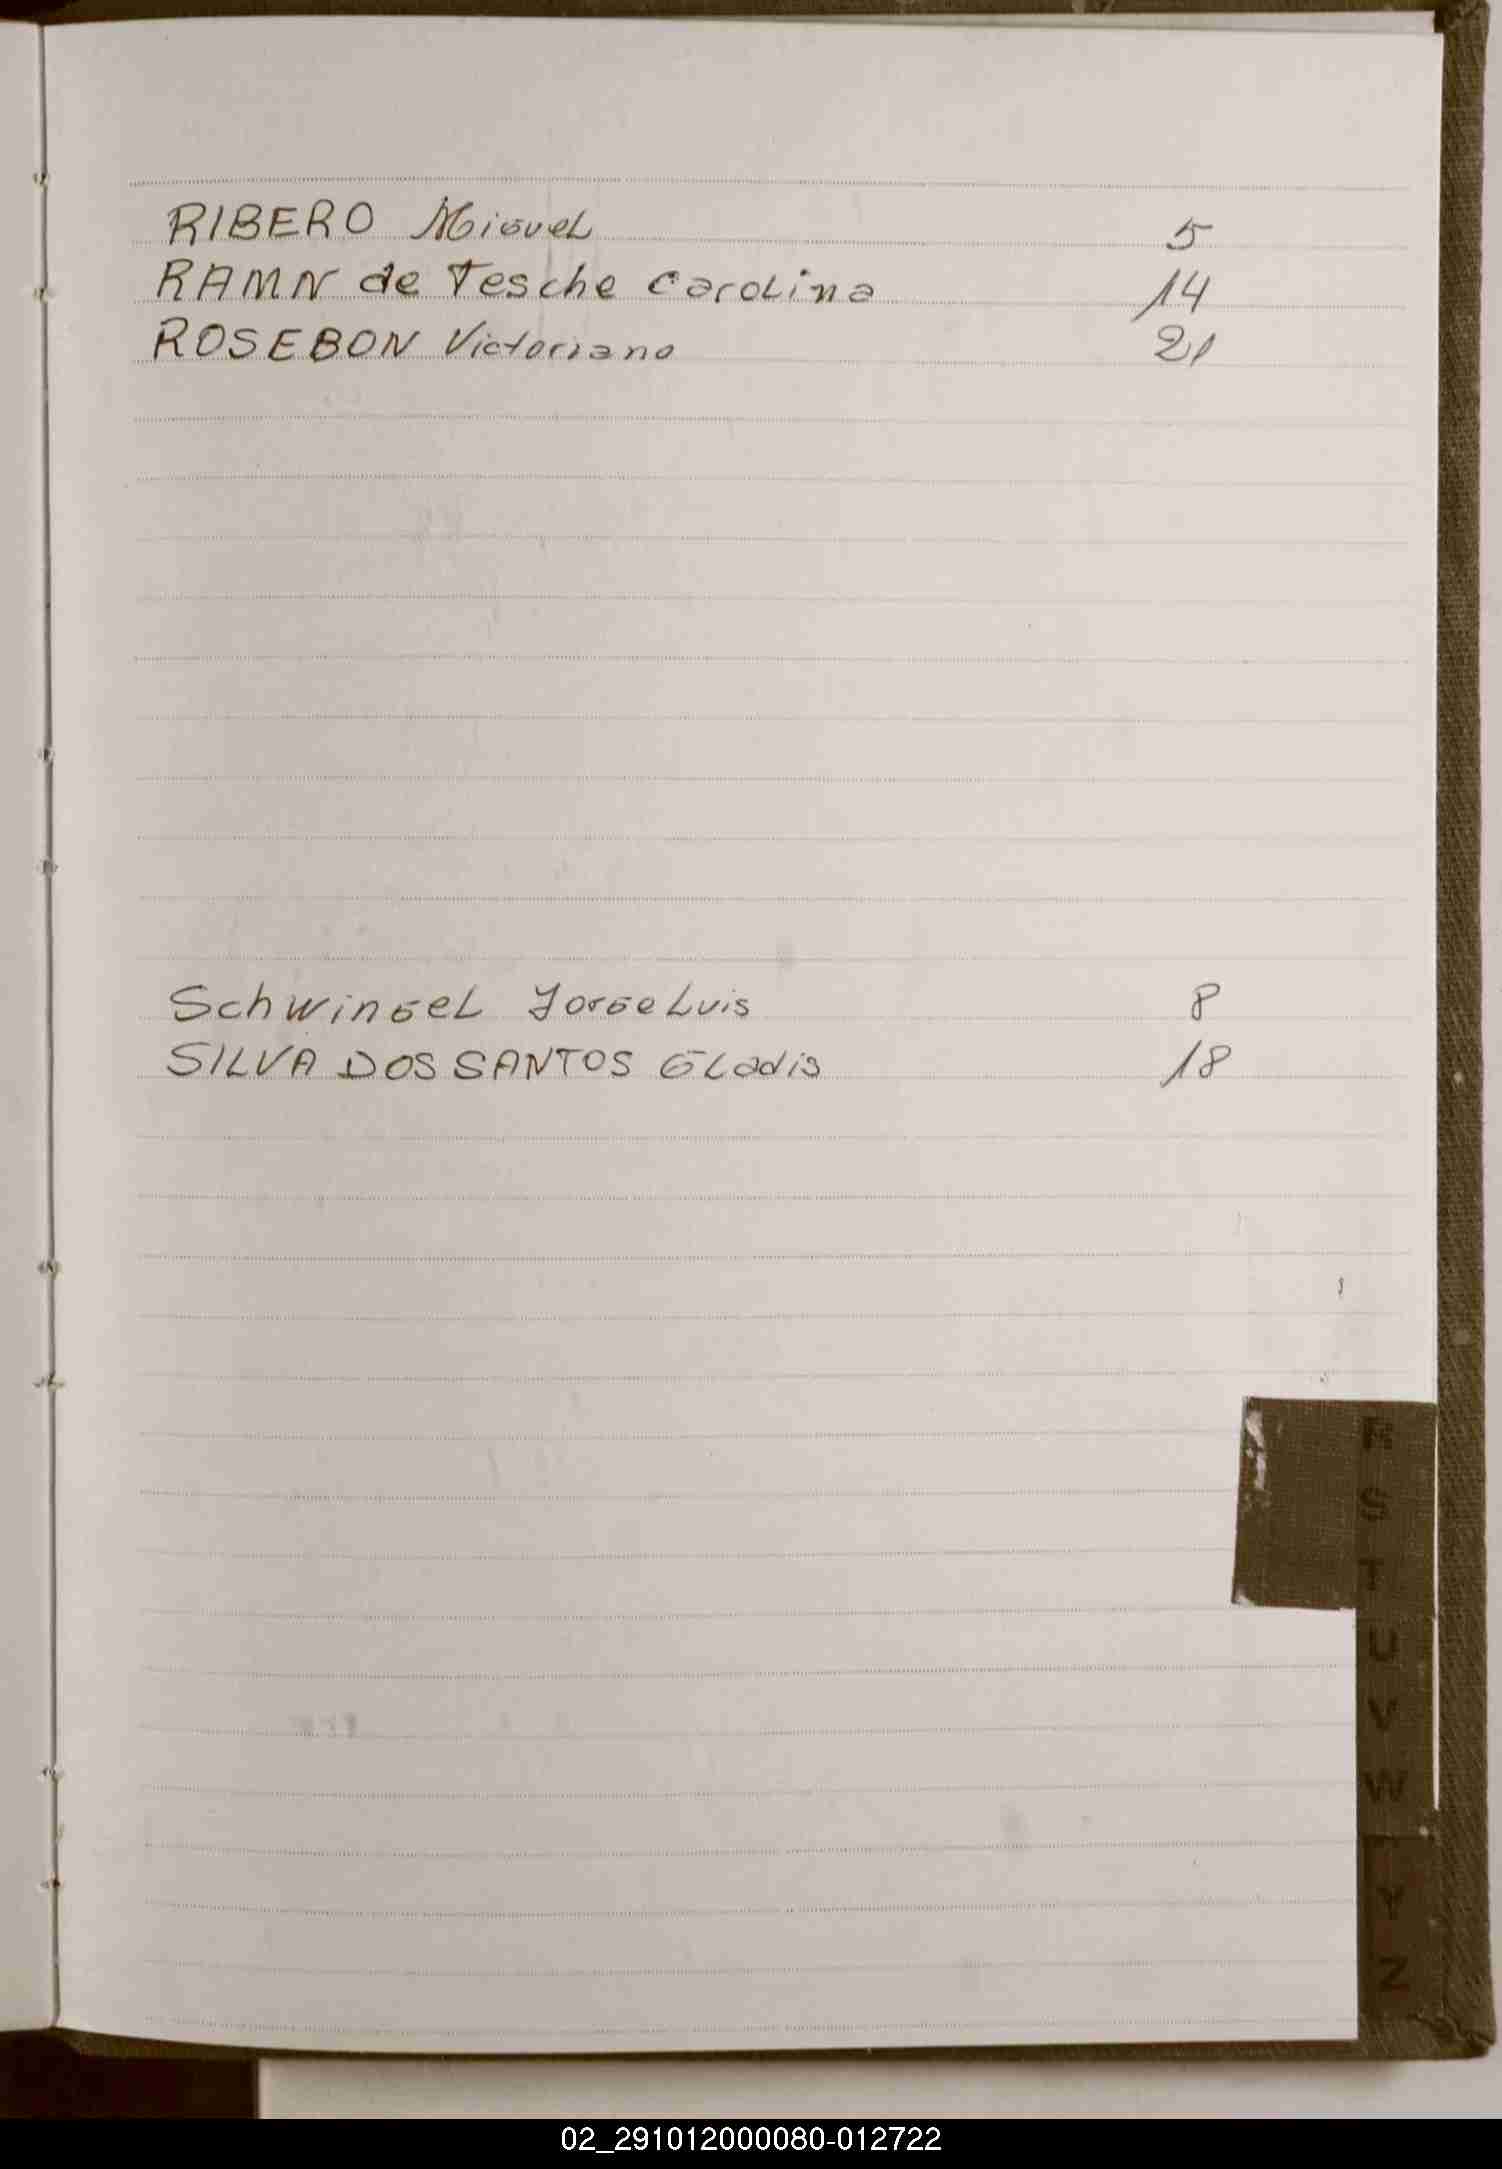 RIBERO Miguel 5
RAMN de Tesche Carolina 14
ROSEBON Victoriano 21
Schwingel Jorge Luis 8
SILVA DOS SANTOS Gladis 18
R
S
T
U
V
W
Y
Z
02_291012000080-012722